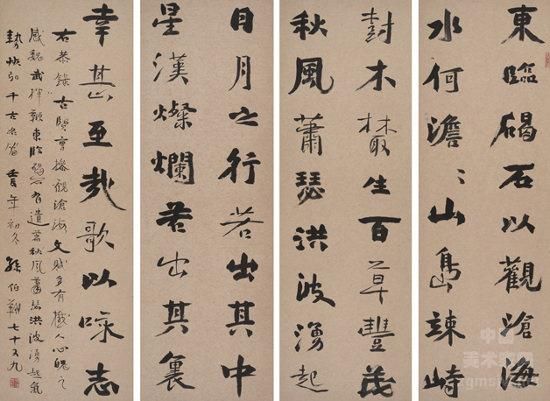 東臨碣石以觀滄海
水何澹〻山島竦崎
樹木樷生百草豐茂
秋風蕭瑟洪波湧起
日月之行若出其中
星漢燦爛若出其裏
幸甚至哉歌以咏志
右恭錄古賢操觀滄海文賦多有撼人心魄之
感魏武揮鞭東臨碣石有遺篇秋風蕭瑟洪波湧起氣
勢恢弘千古年初冬孫伯翔七十又九
中国
美术家网